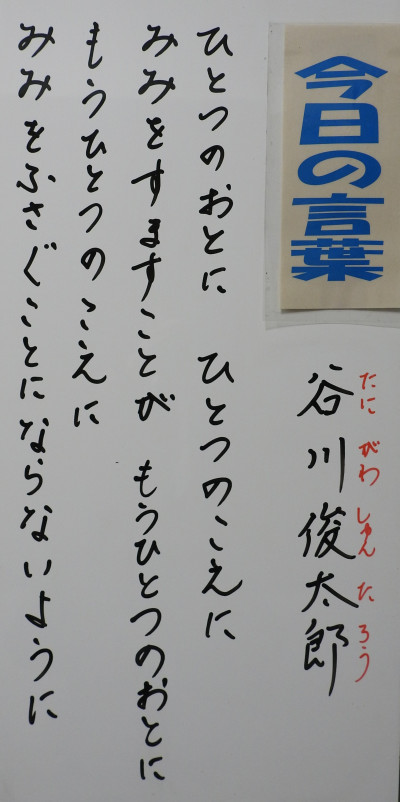 今日の言葉
谷川俊太郎
たにがわしゅんたろう
ひとつのおとに ひとつのこえに
みみをすますことが もうひとつのおとに
もうひとつのこえに
みみをふさぐことにならないように